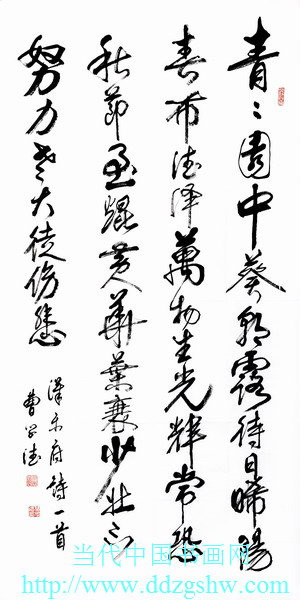 青〻園中葵朝露待日晞陽
春布德泽萬物生光輝常恐
秋節至焜黄華葉衰少壮不
努力老大徒傷悲
漢乐府詩一首
曹
德
当代中国书画网
http://www.ddzgshw.com